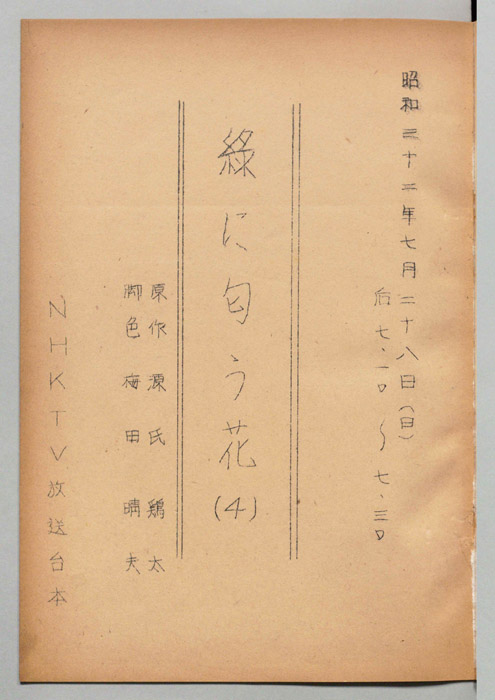 昭和三十二年七月二十八日(日)
后七、一〇〜七、三〇
綠に匂う花
(4)
原作 源氏鶏太
脚色 梅田晴夫
NHKTV放送台本